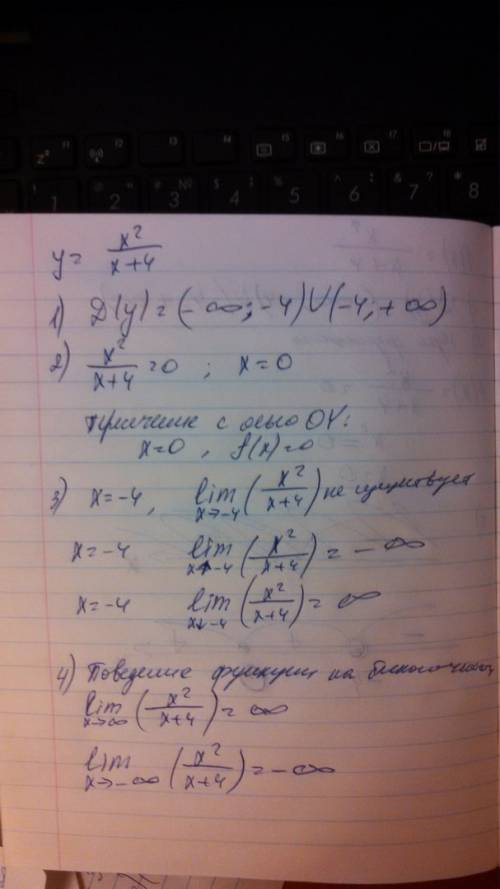 y = x²/(x+4)
1) D(y) = (-∞; -4) U (-4; +∞)
2) x²/(x+4) = 0 ; x = 0
с осью OY:
x=0 , f(x)=0
3) x = -4, lim x→-4 (x²/(x+4)) не существует
x = -4 lim (x²/(x+4)) = -∞
x = -4 lim (x²/(x+4)) = ∞
4) Поведение функции на бесконечности
lim x→∞ (x²/(x+4)) = ∞
lim x→-∞ (x²/(x+4)) = -∞